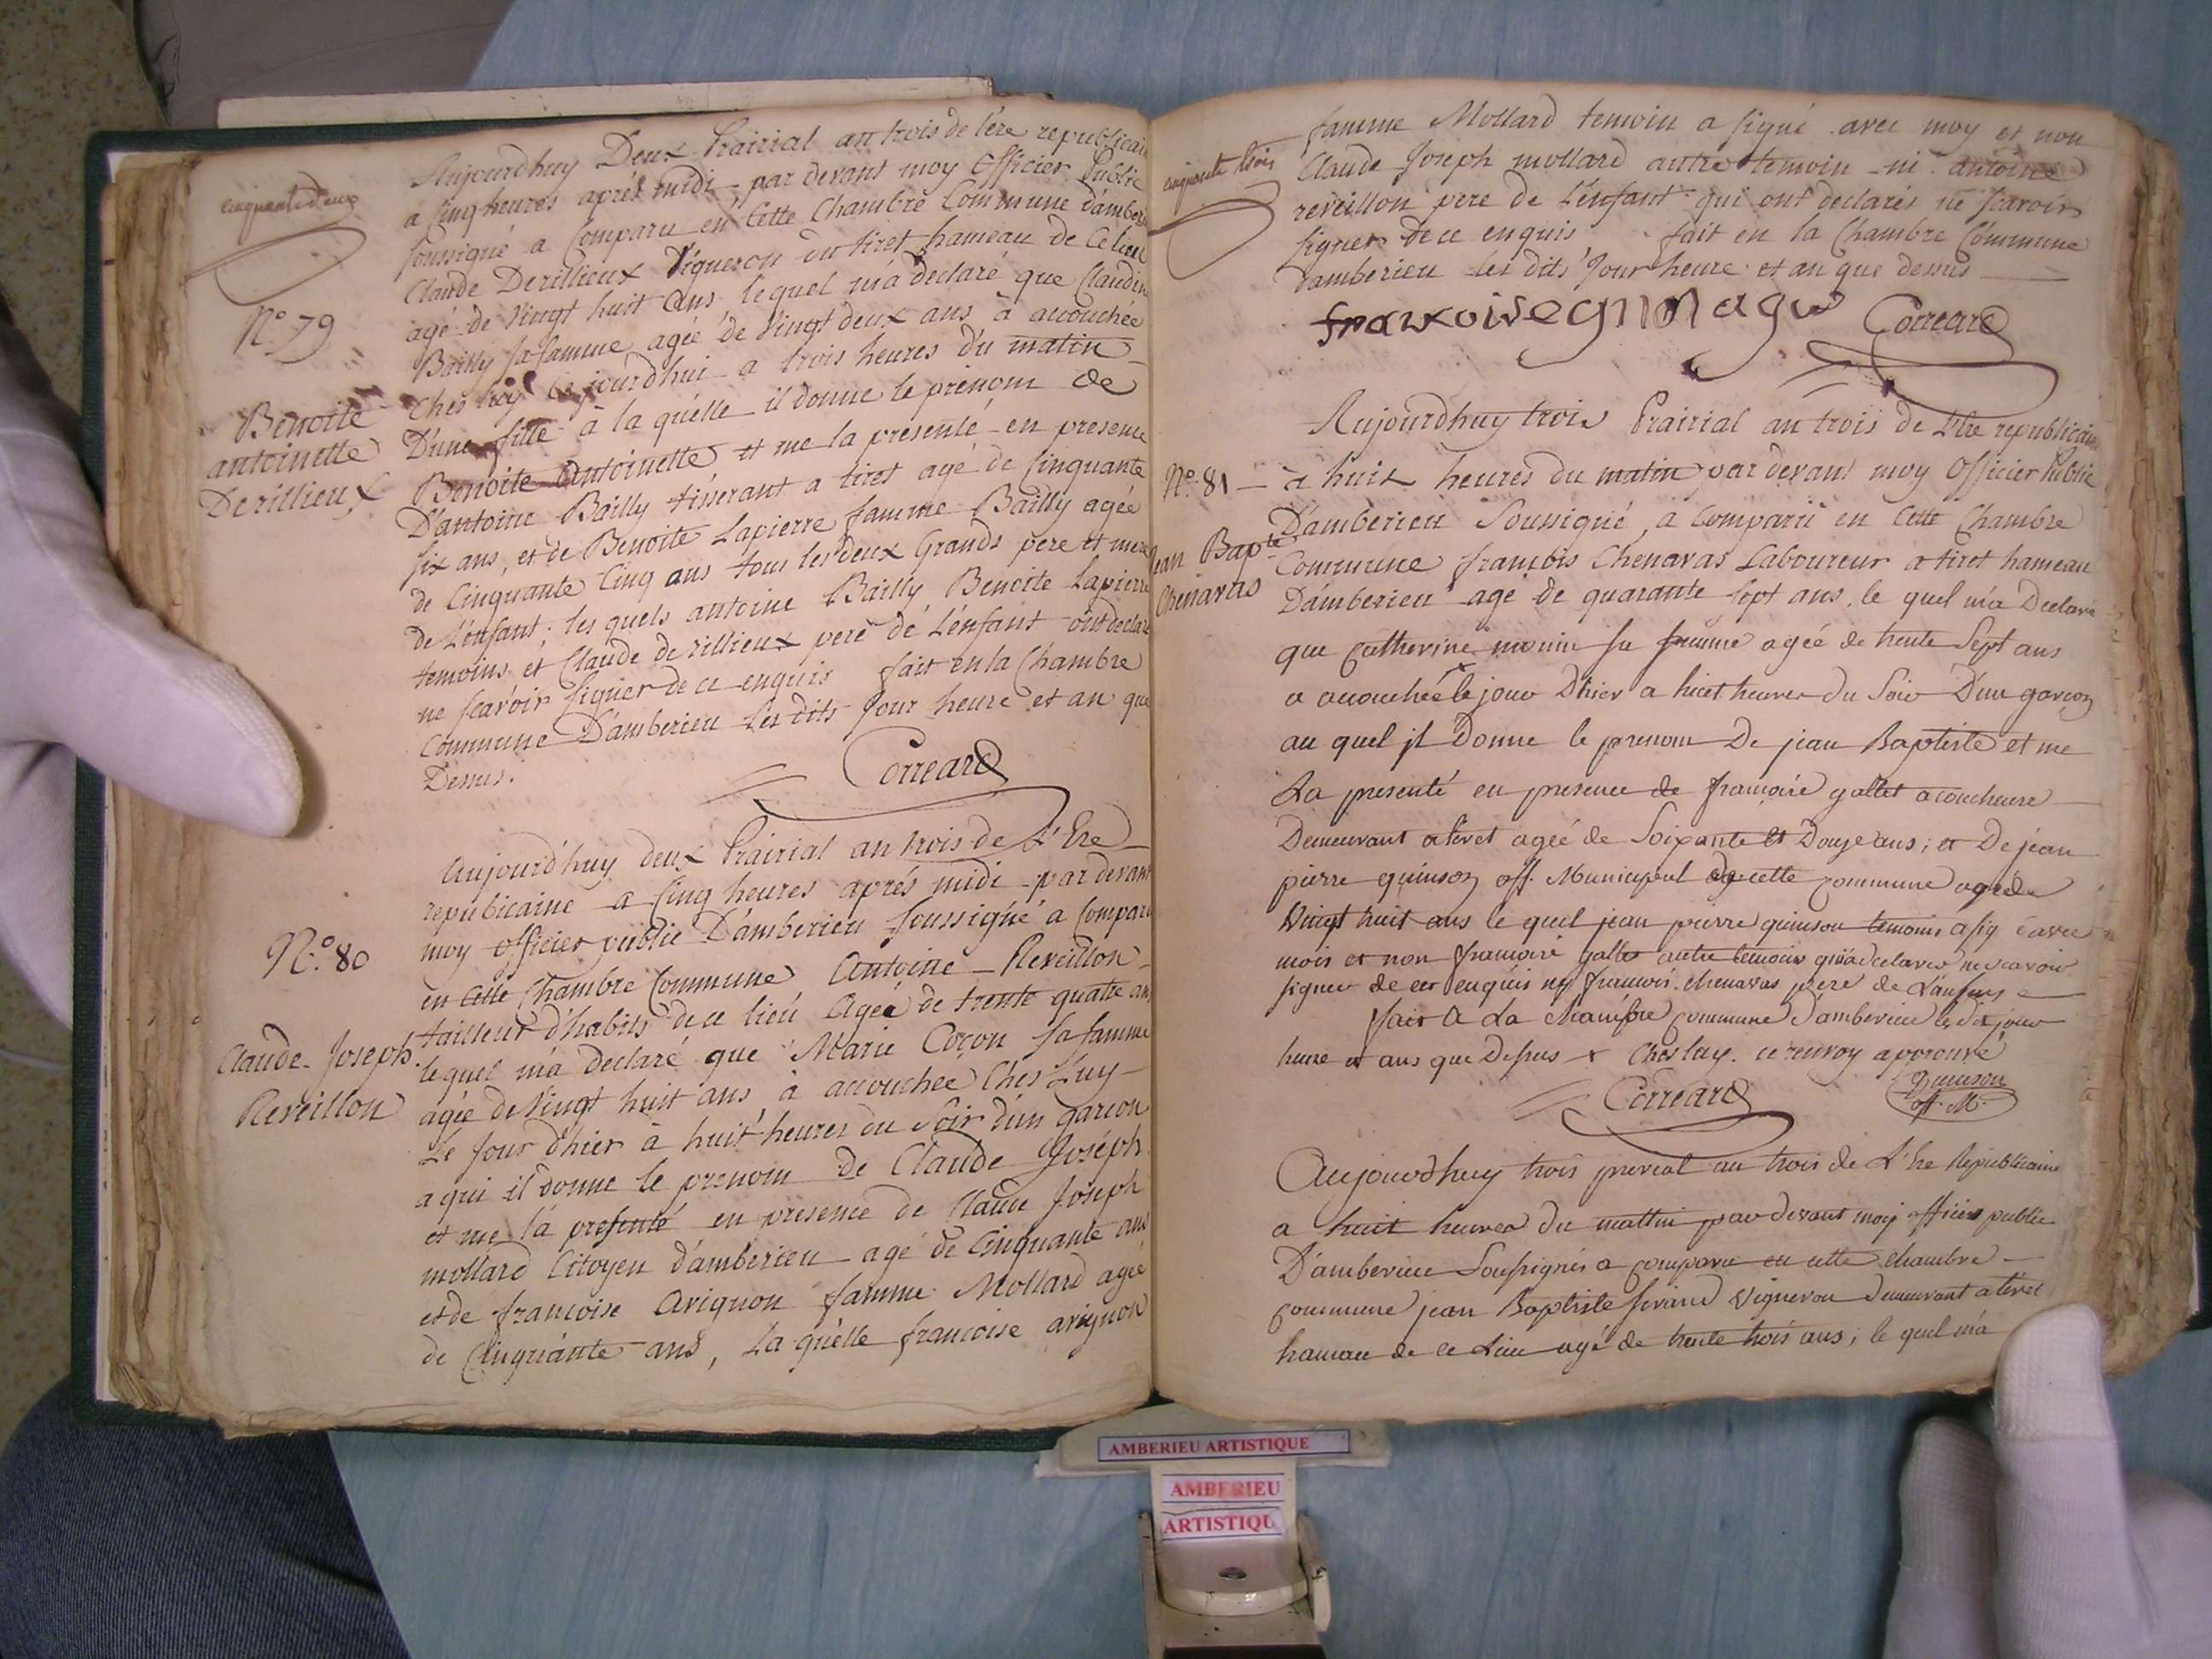 cinquantedeux
Aujourdhuy Deux Prairial an trois de l'ére republicai
a cinq heures aprés midi par devant moy officier Public
soussigné a Comparu en Cette Chambre Commune d'amberi
Claude Derillieux Vigneron du tiret hameau de Ce lieu
agé de Vingt huit ans lequel m'a declaré que Claudin
N.º 79
Bailly sa famme agée de Vingt deux ans à accouchée
Ches luy Cejourd'hui a trois heures du matin
Benoite
antoinette
Derillieux
D'une fille à la quelle il donne le prénom de
Benoite Antoinette et me la presenté en presence
D'antoine Bailly tisserant a tiret agé de Cinquante
six ans, et de Benoite Lapierre famme Bailly agée
de Cinquante Cinq ans tous les deux Grands pere et mere
de L'enfant; les quels antoine Bailly Benoite Lapierre
temoins et Claude de rillieux pere de L'enfant ont declaré
ne scavoir signer de ce enquis fait en la Chambre
Commune D'amberieu les dits jour heure et an que
Dessus.
Correard
Aujourd'huy deux Prairial an trois de L'Ere
republicaine a Cinq heures aprés midi par devant
N.º 80
moy officier public D'amberieu soussigné a Comparu
en Cette Chambre Commune Antoine Reveillon
tailleur d'habits de ce lieu Agée de trente quatre ans
Claude Joseph
Reveillon
lequel m'a declaré que Marie Coçon sa famme
agée de Vingt huit ans à accouchée Ches Luy
Le jour d'hier à huit heures du Soir d'un garcon
a qui il donne le prenom de Claude Joseph
et me la presenté en presence de Claude Joseph
mollard Citoyen d'amberieu agé de Cinquante ans
et de francoise Avignon famme Mollard agée
de Cinquante ans, La quelle francoise avignon
cinquante trois
famme Mollard temoin a signé avec moy et non
Claude Joseph mollard autre temoin ni antoine
reveillon pere de L'enfant qui ont declarés ne scavoir
signer de ce enquis fait en la Chambre Commune
d'amberieu les dits Jour heure et an que dessus
Correard
Aujourdhuy trois Prairial an trois de L'Ere republicaine
N.º 81
à huit heures du matin par devant moy Officier Public
D'amberieu Soussigné, a Comparu en Cette Chambre
Jean Bapte
Chenavas
Commune francois Chenavas Laboureur a tiret hameau
D'amberieu agé de quarante sept ans. le quel m'a Declaré
que Catherine monin sa famme ageé de trente Sept ans
a accouchée le jour D'hier a huit heures du Soir D'un garcon
au quel jl Donne le prenom De jean Baptiste et me
La presenté en presence de francoise gallet acoucheure
Demeurant a tiret ageé de Soixante et Douze ans; et De jean
pierre quinson off. Municipal de cette commune agéde
Vingt huit ans le quel jean pierre quinson temoins a sig é avec
mois et non francoise gallet autre temoin qui a declarer ne scavoir
signer de ce enquis ny francois chenavas pere de L'anfans
fait a La Chambre commune D'amberieu les dit jour
heure et ans que Dessus x Ches luy. ce renvoy approuvé
Correard
quinson
off. M.
Aujourdhuy trois prerial an trois de L'Ere Republicaine
a huit heures du mattin par devant moy officier public
D'amberieu Soussignés a comparu en cette chambre
commune jean Baptiste Vigneron Demeurant a tiret
hamau de ce Lieu agé de trente trois ans; le quel m'a
AMBERIEU ARTISTIQUE
AMBERIEU
ARTISTIQU